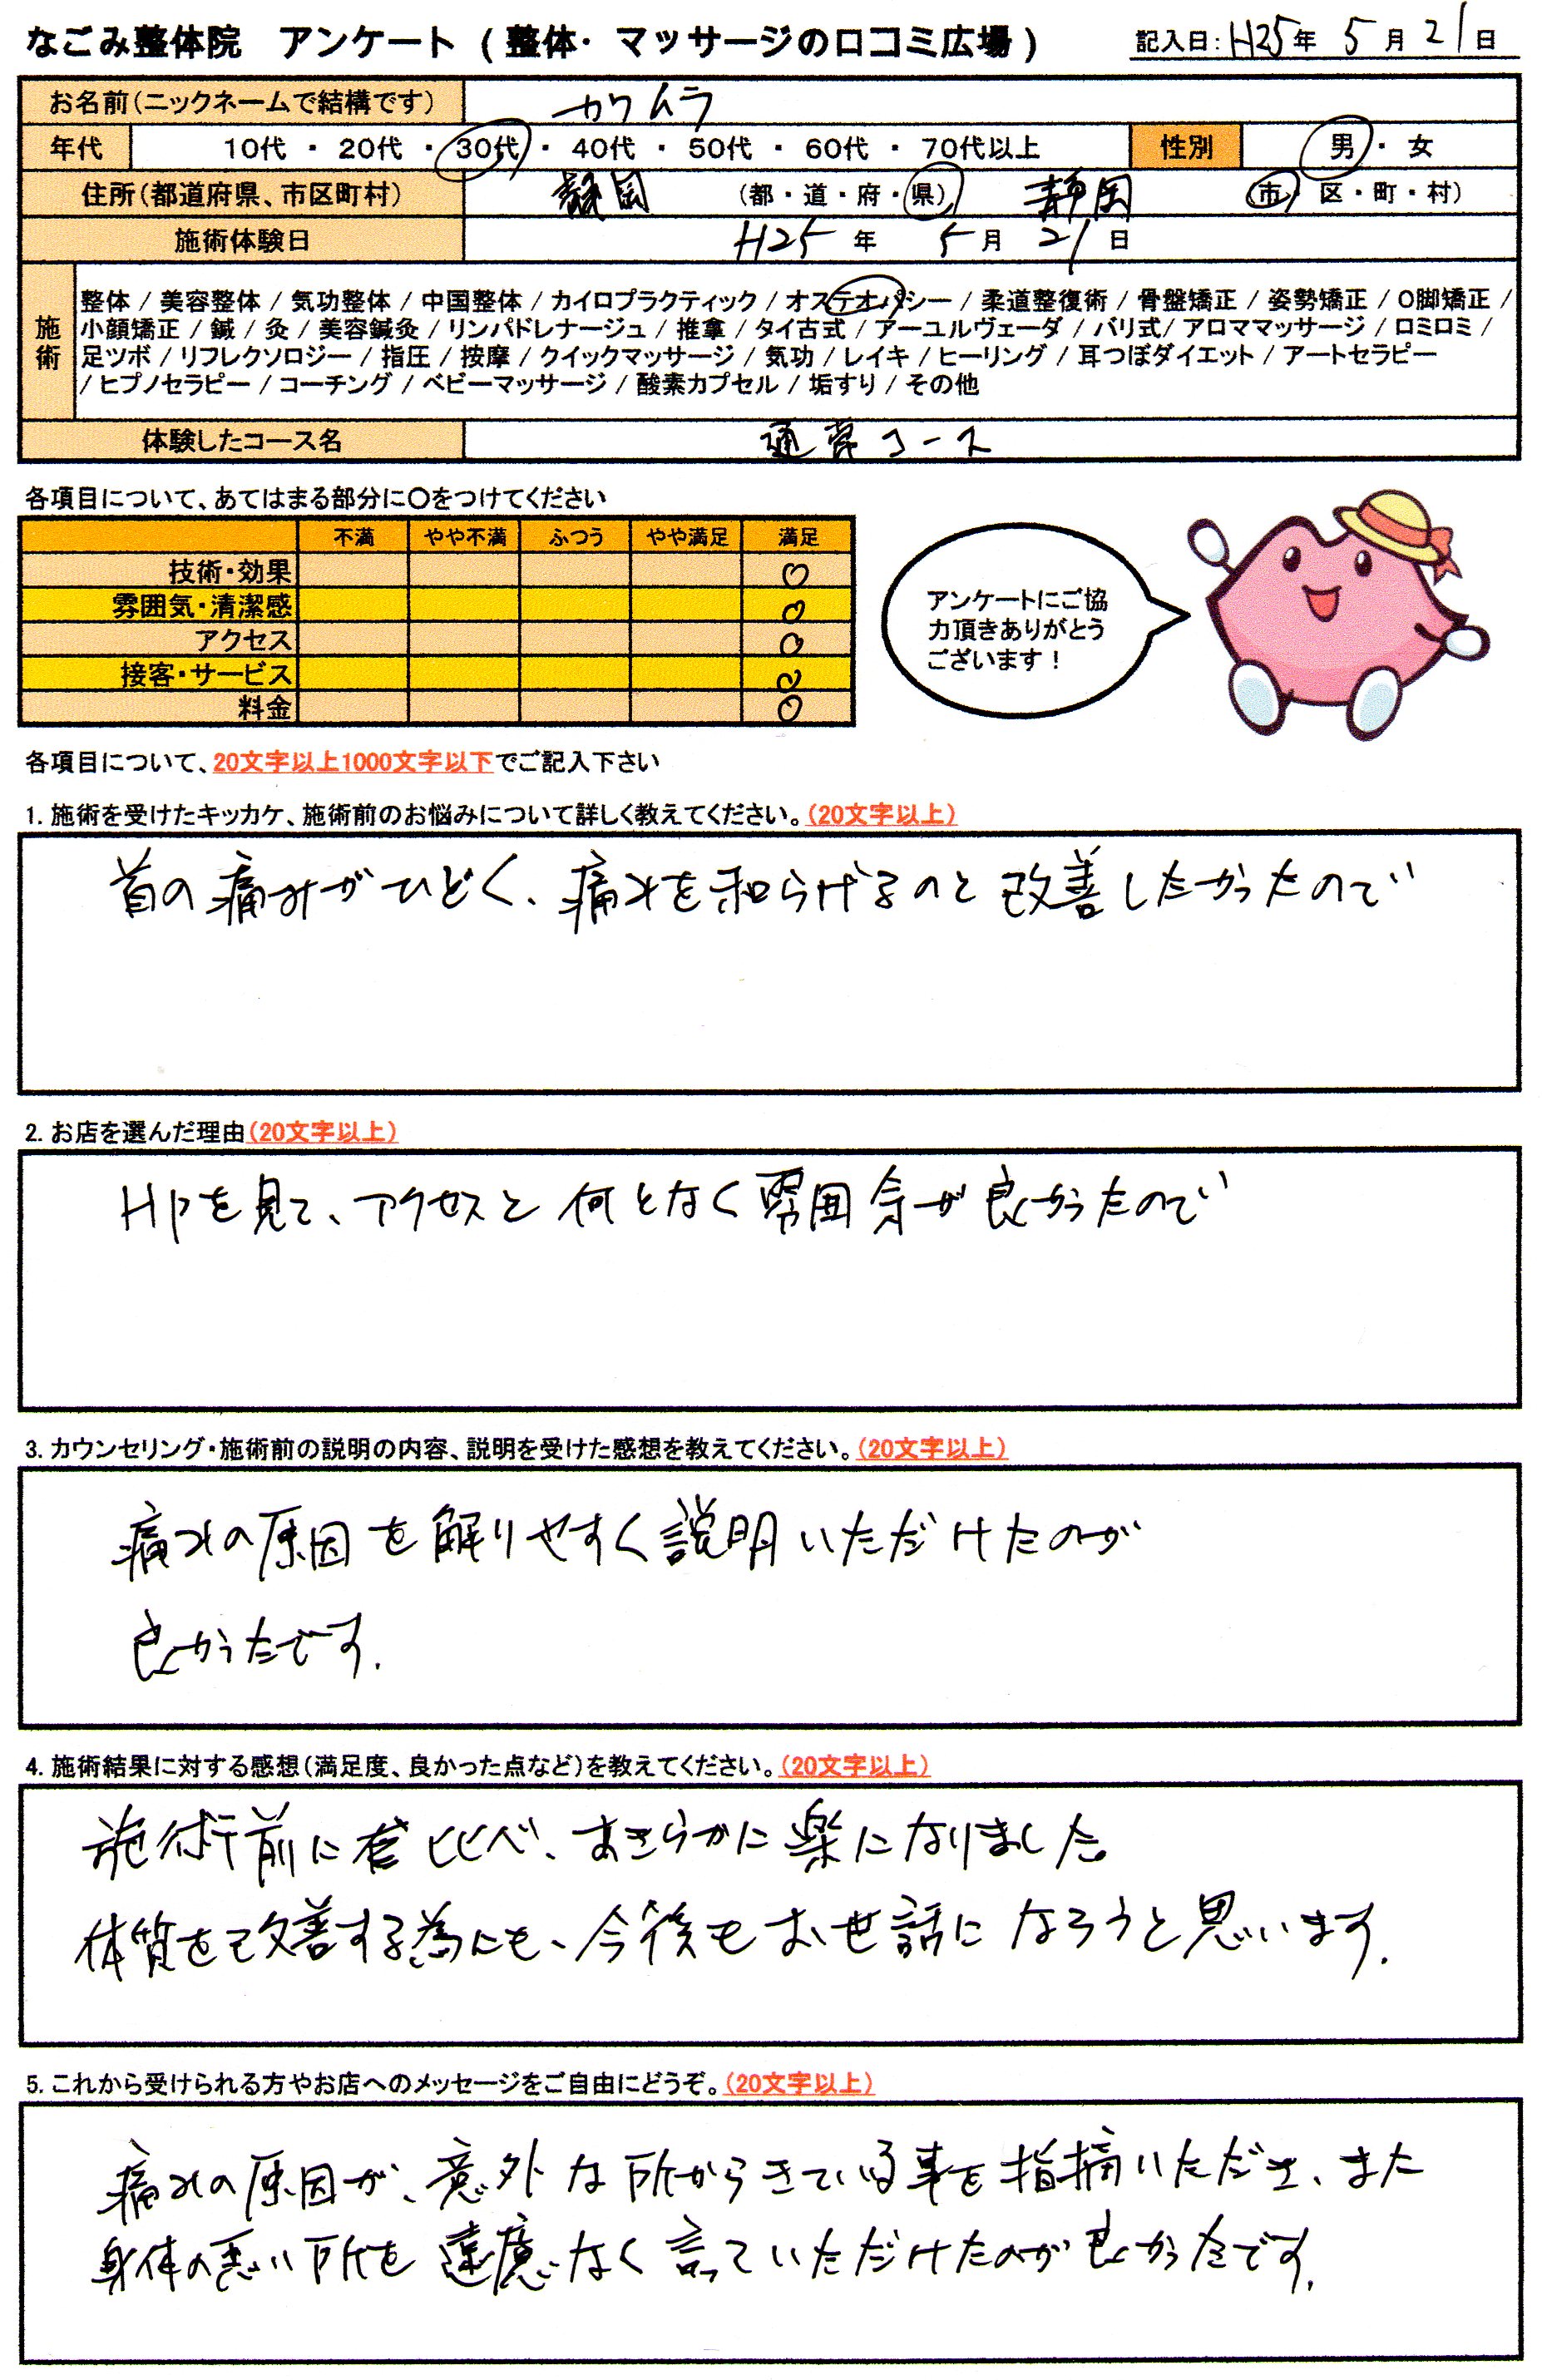 なごみ整体院 アンケート (整体・マッサージの口コミ広場) 記入日:H25年 5月 21日
お名前(ニックネームで結構です) カワムラ
年代 10代 ・ 20代 ・ 30代 ・ 40代 ・ 50代 ・ 60代 ・ 70代以上 性別 男 ・ 女
住所(都道府県、市区町村) 静岡 (都・道・府・県) 静岡 (市・区・町・村)
施術体験日 H25 年 5月 21日
施術
整体 / 美容整体 / 気功整体 / 中国整体 / カイロプラクティック / オステオパシー / 柔道整復術 / 骨盤矯正 / 姿勢矯正 / O脚矯正 /
小顔矯正 / 鍼 / 灸 / 美容鍼灸 / リンパドレナージュ / 推拿 / タイ古式 / アーユルヴェーダ / バリ式/ アロママッサージ / ロミロミ /
足ツボ / リフレクソロジー / 指圧 / 按摩 / クイックマッサージ / 気功 / レイキ / ヒーリング / 耳つぼダイエット / アートセラピー
/ ヒプノセラピー / コーチング / ベビーマッサージ / 酸素カプセル / 垢すり / その他
体験したコース名 通常コース
各項目について、あてはまる部分に〇をつけてください
不満 やや不満 ふつう やや満足 満足
技術・効果 〇
雰囲気・清潔感 〇
アクセス 〇
接客・サービス 〇
料金 〇
アンケートにご協
力頂きありがとう
ございます!
各項目について、20文字以上1000文字以下でご記入下さい
1. 施術を受けたキッカケ、施術前のお悩みについて詳しく教えてください。(20文字以上)
首の痛みがひどく、痛みを和らげるのと改善したかったので
2. お店を選んだ理由(20文字以上)
HPを見て、アクセスと何となく雰囲気が良かったので
3. カウンセリング・施術前の説明の内容、説明を受けた感想を教えてください。(20文字以上)
痛みの原因を解りやすく説明いただけたのが
良かったです.
4. 施術結果に対する感想(満足度、良かった点など)を教えてください。(20文字以上)
施術前に比べ、あきらかに楽になりました。
体質を改善する為にも、今後もお世話になろうと思います.
5. これから受けられる方やお店へのメッセージをご自由にどうぞ。(20文字以上)
痛みの原因が、意外な所からきている事を指摘いただき、また
身体の悪い所を遠慮なく言っていただけたのが良かったです.